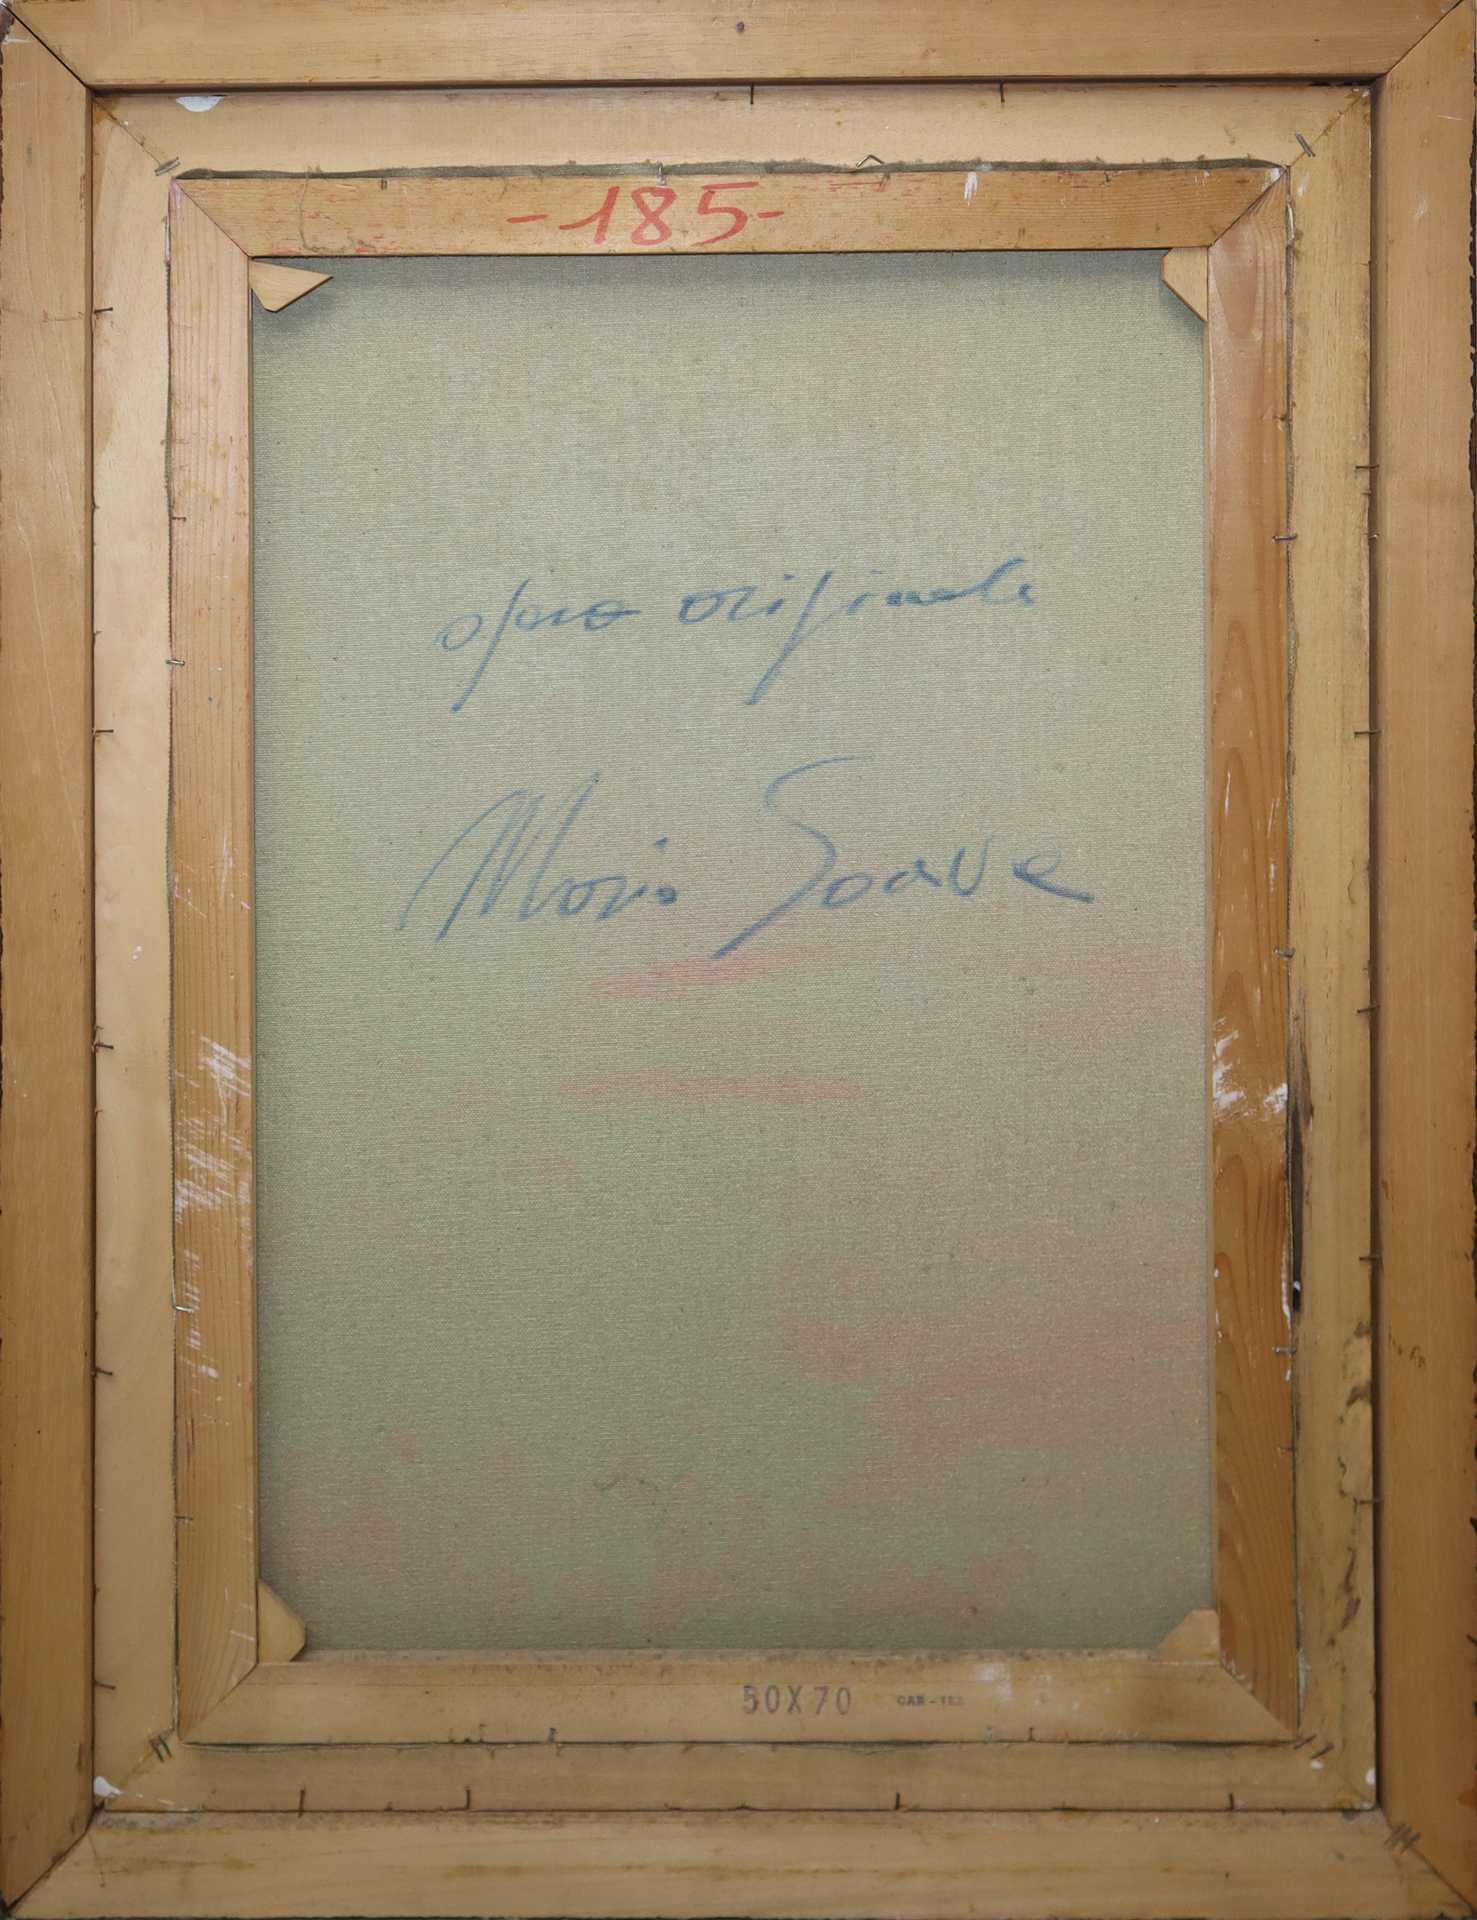 -185-
opera originale
Mario Soave
50X70 CAB-TES